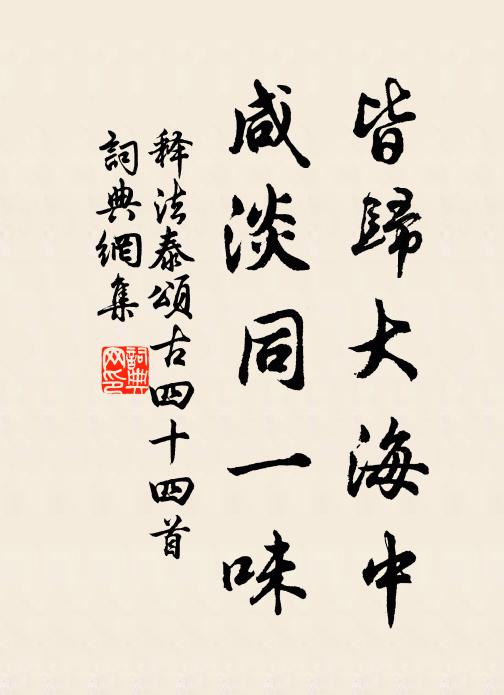 皆歸大海中
咸淡同一味
释法泰頌古四十四首
詞典網集
詞典网印